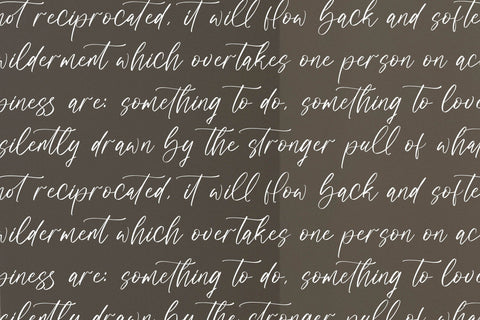 not reciprocated, it will flow back and softe
wilderment which overtakes one person on ac
piness are: something to do, something to love
silently drawn by the stronger pull of wha
not reciprocated, it will flow back and softe
wilderment which overtakes one person on ac
piness are: something to do, something to love
silently drawn by the stronger pull of wha